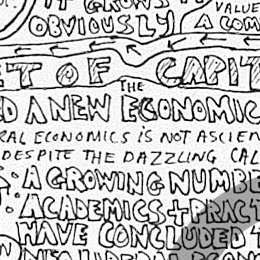 IT GROWS
VALUE
OBVIOUSLY
A COM
ET OF CAPIT
THE
D A NEW ECONOMIC
RAL ECONOMICS IS NOT A SCIEN
DESPITE THE DAZZLING CAL
A GROWING NUMBE
ACADEMICS + PRACT
HAVE CONCLUDED T